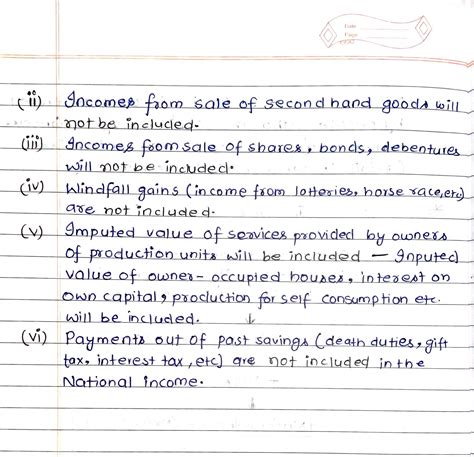 Date
Page
(ii) Incomes from sale of second hand goods will
not be included.
(iii) Incomes from sale of shares, bonds, debentures
will not be included.
(iv) Windfall gains (income from lotteries, horse race, etc)
are not included.
(v) Imputed value of services provided by owners
of production units will be included — Inputed
value of owner-occupied houses, interest on
own capital, production for self consumption etc.
will be included.
(vi) Payments out of past savings (death duties, gift
tax, interest tax, etc) are not included in the
National income.